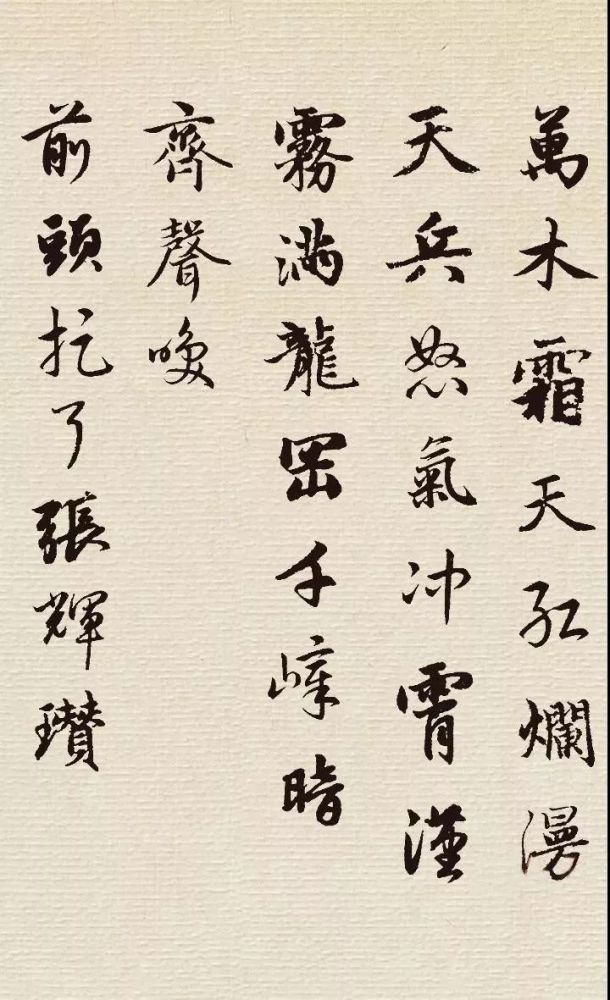 萬木霜天紅爛漫
天兵怒氣冲霄漢
霧滿龍岡千嶂暗
齊聲喚
前頭捉了張輝瓚